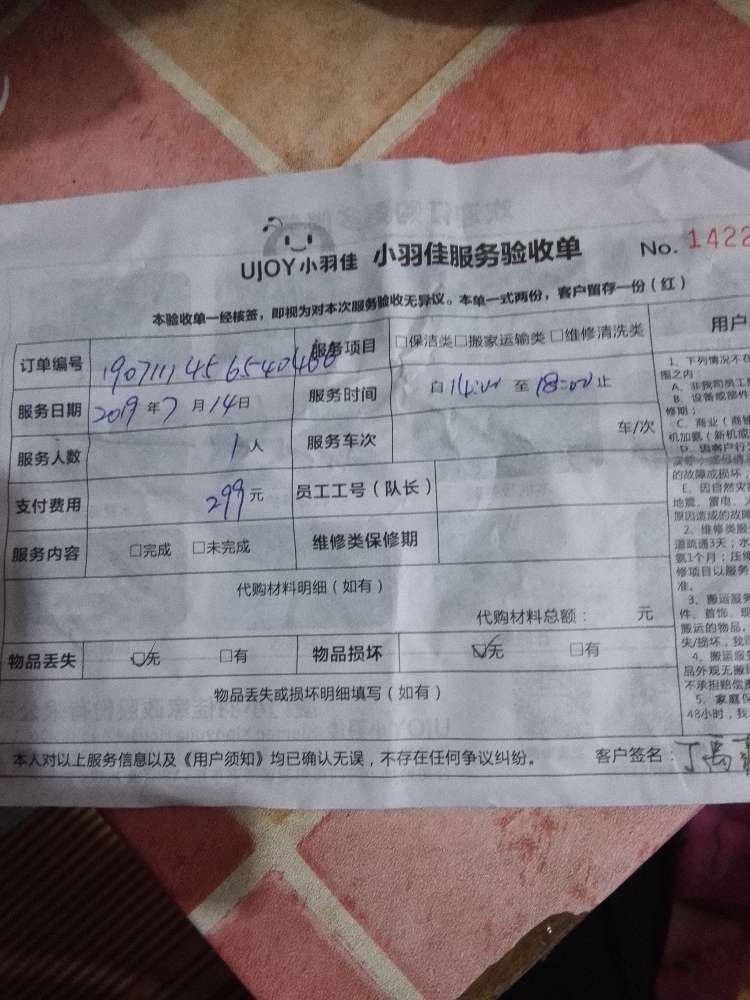 UJOY小羽佳 小羽佳服务验收单 No. 1422
本验收单一经核签，即视为对本次服务验收无异议。本单一式两份，客户留存一份（红）
订单编号 服务项目 □保洁类□搬家运输类□维修清洗类
服务日期 2019年7月14日 服务时间 自14:00至18:00止
服务人数 1人 服务车次 车/次
支付费用 299元 员工工号（队长）
服务内容 □完成 □未完成 维修类保修期
代购材料明细（如有）
代购材料总额： 元
物品丢失 ☑无 □有 物品损坏 ☑无 □有
物品丢失或损坏明细填写（如有）
本人对以上服务信息以及《用户须知》均已确认无误，不存在任何争议纠纷。 客户签名：丁禹
用户
1、下列情况不在
围之内：
A、非我司员工
B、设备或部件
修期；
C、商业（商铺
机加氨（新机或
的故障或损坏
E、因自然灾
地震、雷电、
原因造成的故障
2、维修类服
道疏通3天；水
氨1个月；压缩
修项目以服务
准。
3、搬运服务
件、首饰、现
搬运的物品，
失/损坏，我
4、搬运服务
品外观无搬运
不承担赔偿责
5、家庭保
48小时，我